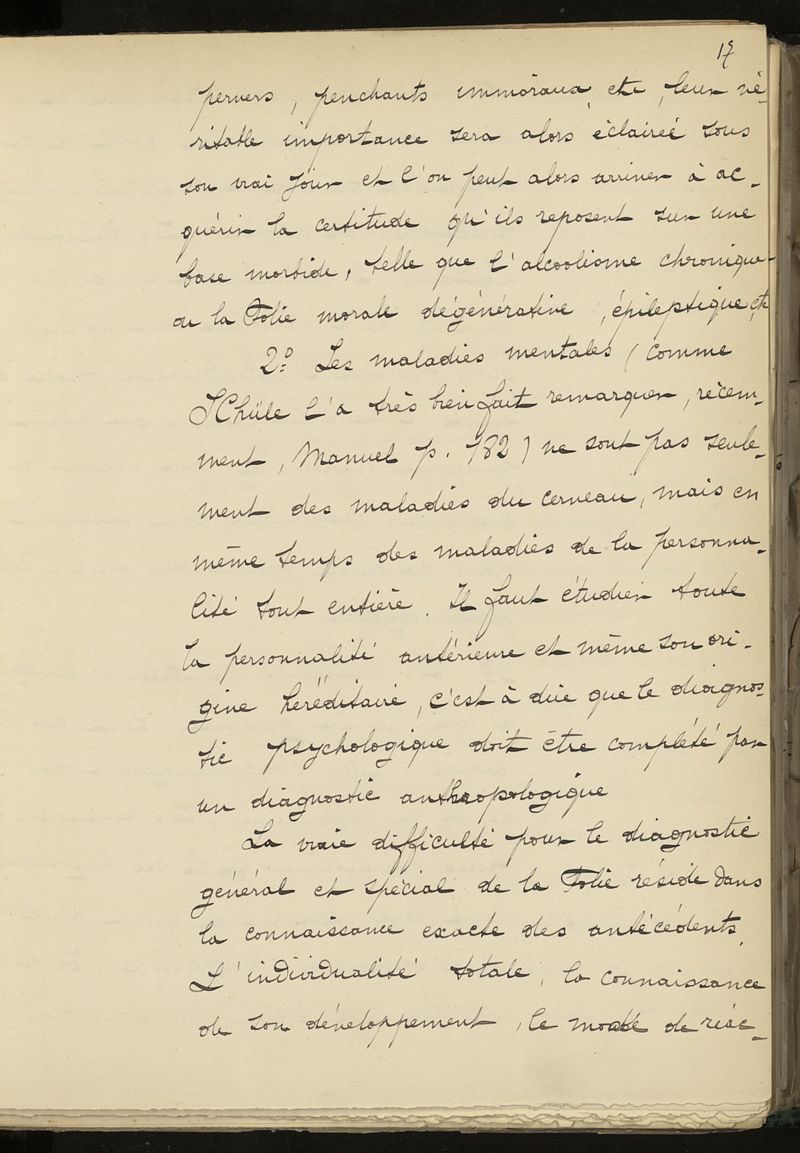 17
pervers, penchants immoraux, etc, leur vé-
ritable importance sera alors éclaireé sous
son vrai jour et l'on peut alors arriver à ac-
quérir la certitude qu'ils reposent sur une
base morbide, telle que l'alcoolisme chronique
ou la Folie morale dégénérative, épileptique, etc
2.º Les maladies mentales (comme
SChüle l'a très bien fait remarquer, récem-
ment, Manuel p. 182) ne sont pas seule-
ment des maladies du cerveau, mais en
même temps des maladies de la personna-
lité tout entière. Il faut étudier toute
la personnalité antérieure et même son ori-
gine heréditaire, c'est à dire que le diagnos-
tic psychologique doit être complété par
un diagnostic anthropologique
La vraie difficulté pour le diagnostic
général et spécial de la Folie réside dans
la connaissance exacte des antécédents.
L'individualité totale, la connaissance
de son développement, le mode de réac-